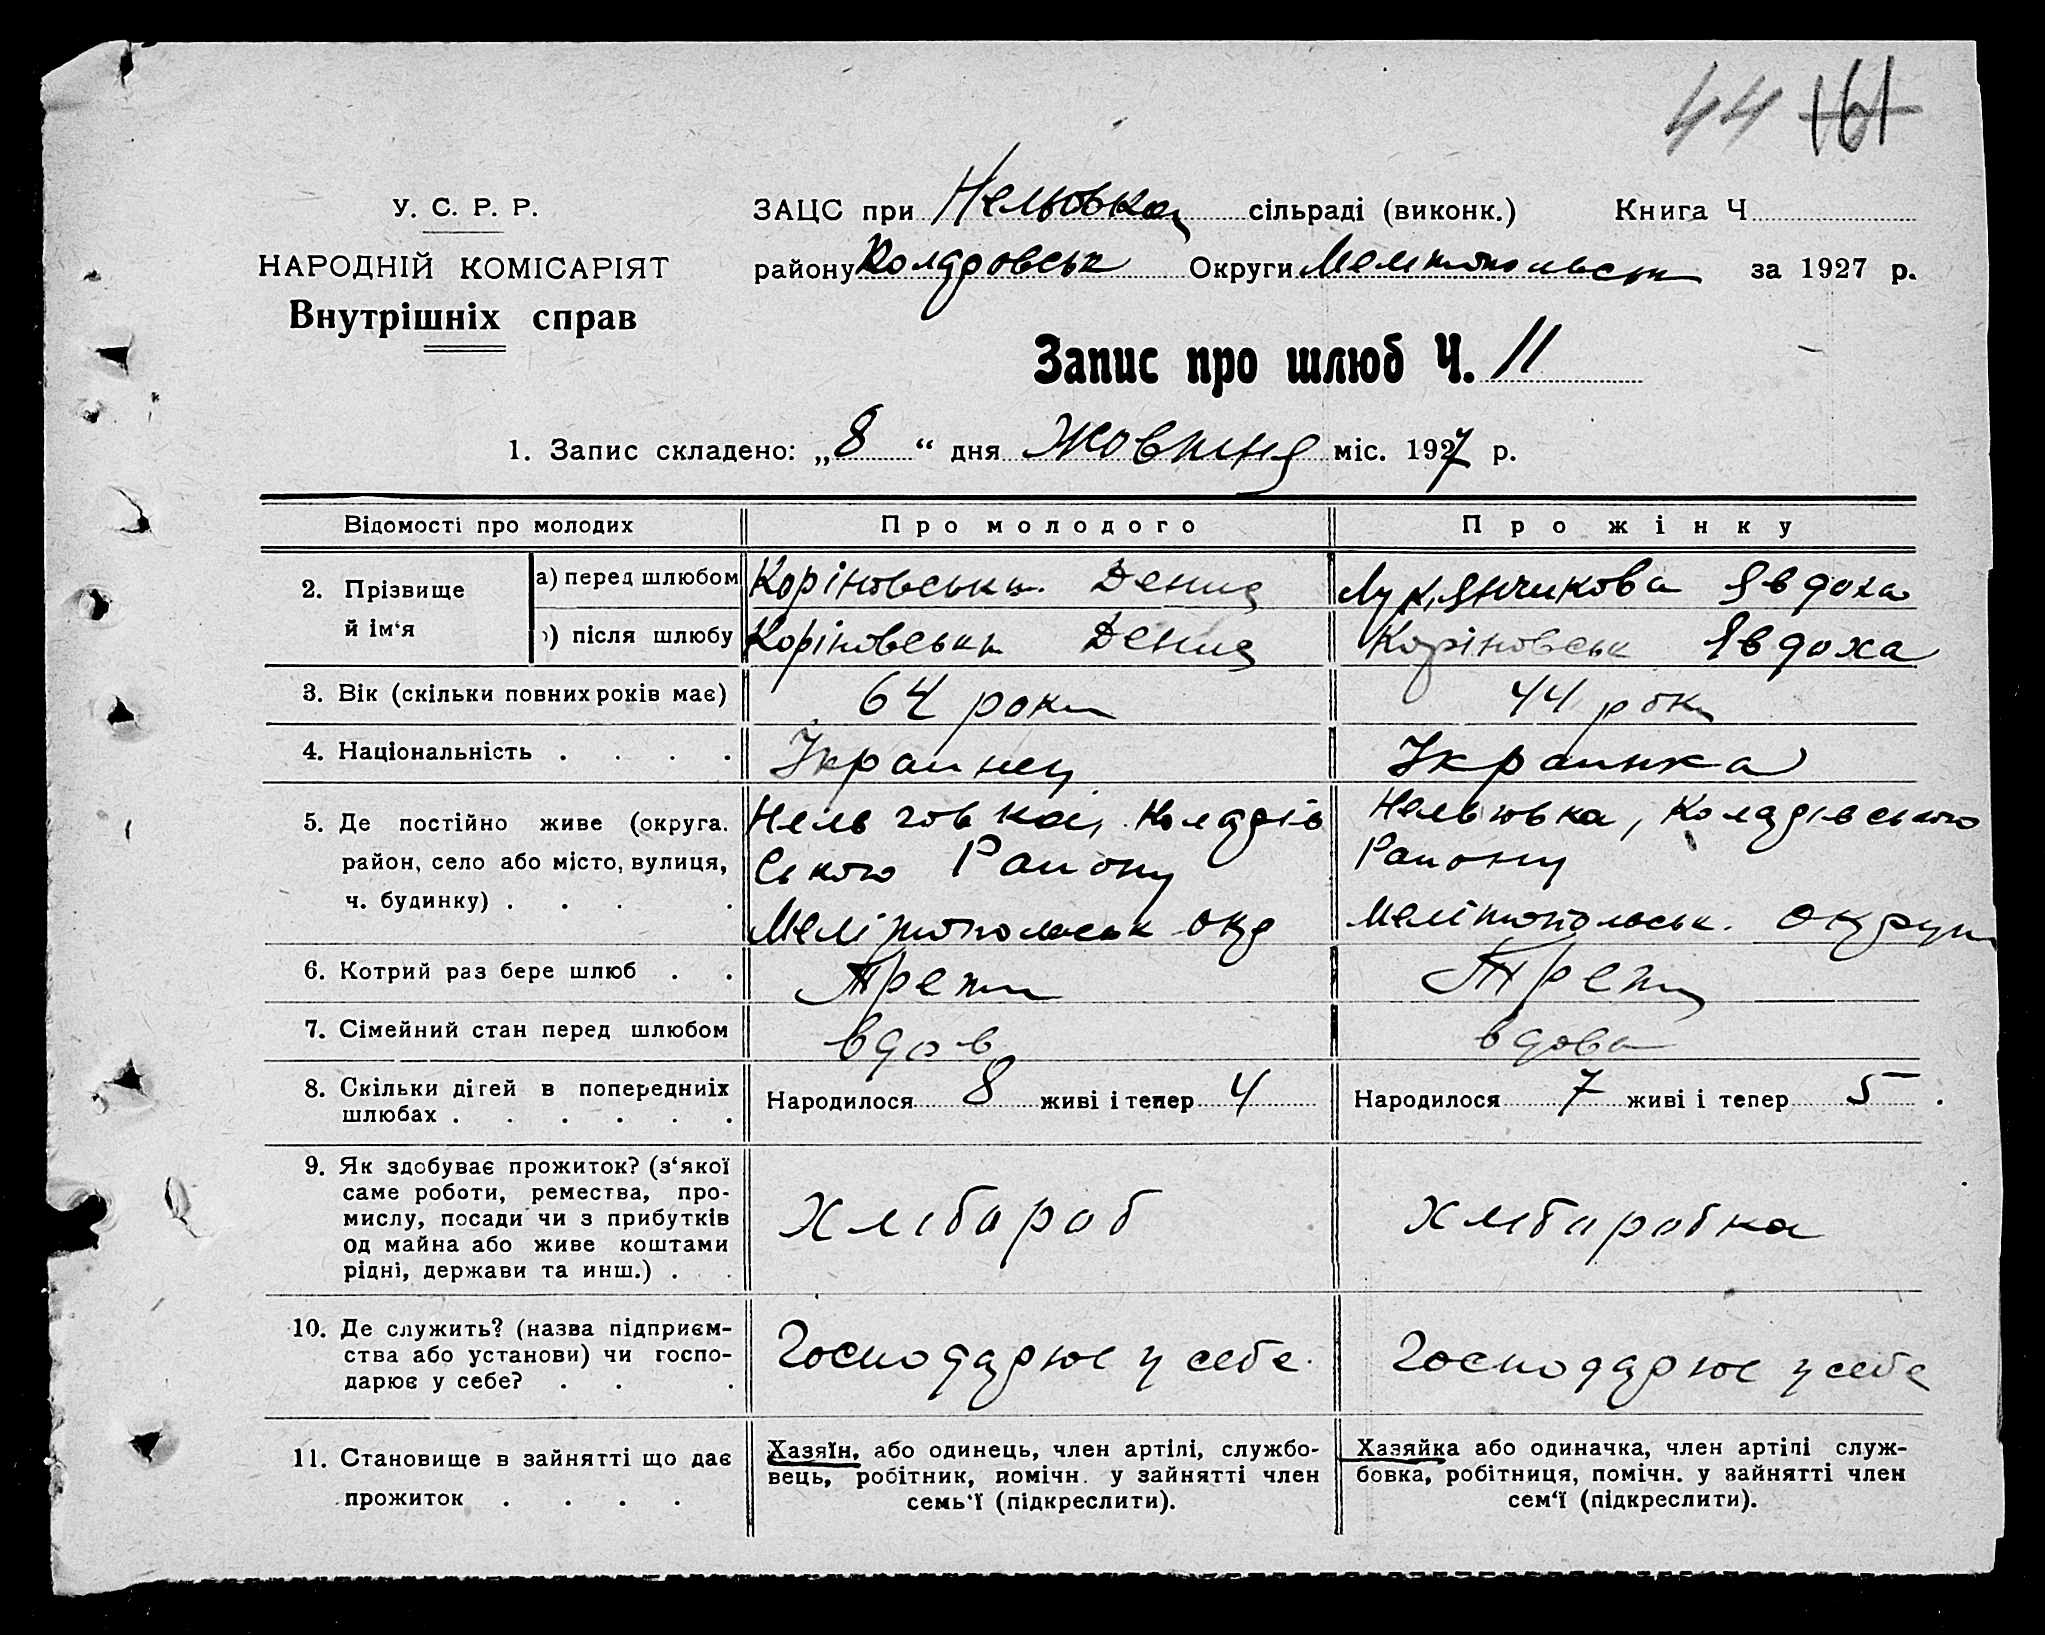 44 161
У. С. Р. Р.
НАРОДНІЙ КОМІСАРІЯТ
Внутрішніх справ
ЗАЦС при Нельговка сільраді (виконк.) Книга Ч
району Коларовськ Округи Мелитопольськ за 1927 р.
Запис про шлюб Ч. 11
1. Запис складено: „8“ дня Жовтня міс. 1927 р.
Відомості про молодих Про молодого Про жінку
2. Прізвище й ім‘я
а) перед шлюбом Коріновськи Дениц Лук,янчикова Явдоха
) після шлюбу Коріновськи Дениц Коріновськ Явдоха
3. Вік (скільки повних років має) 64 роки 44 роки
4. Національність . . . . Украинец Украинка
5. Де постійно живе (округа, район, село або місто, вулиця, ч. будинку) . . . .
Нельговка, Коларів
ського Району
Мелітопольськ окр
Нельговка, Коларівського
Району
Мелітопольськ. округи
6. Котрий раз бере шлюб . . Трети Трети
7. Сімейний стан перед шлюбом вдов вдова
8. Скільки дітей в попередниіх шлюбах . . . . . .
Народилося 8 живі і тепер 4
Народилося 7 живі і тепер 5
9. Як здобуває прожиток? (з‘якої
саме роботи, ремества, про-
мислу, посади чи з прибутків
од майна або живе коштами
рідні, держави та инш.) . .
Хлібароб
Хлібаробка
10. Де служить? (назва підприєм-
ства або установи) чи госпо-
дарює у себе? . . .
Господарює у себе
Господарює у себе
11. Становище в зайнятті що дає
прожиток . . . .
Хазяїн, або одинець, член артілі, службо-
вець, робітник, помічн. у зайнятті член
семь‘ї (підкреслити).
Хазяйка або одиначка, член артілі служ-
бовка, робітниця, помічн. у зайнятті член
сем‘ї (підкреслити).